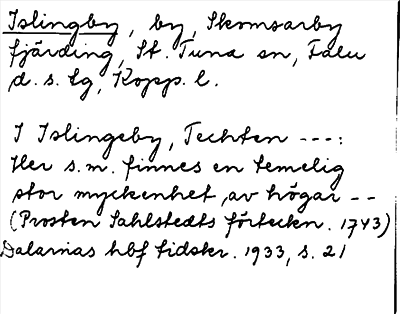 Islingby, by, Skomsarby
fjärding, St. Tuna sn, Falu
d. s. lg, Kopp. l.
I Islingeby, Techten ---:
Her s.m. finnes en temelig
stor myckenhet, av högar --
(Prosten Sahlstedts förteckn. 1743)
Dalarnas hbf tidskr. 1933, s. 21